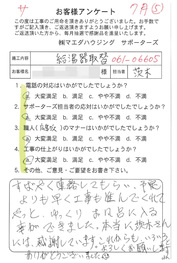 サ
7月(5)
お客様アンケート
この度は工事のご用命を頂きありがとうございました。お手数ですがご記入頂きますようお願い申し上げます。
ご返送頂きましたお客様から、毎月抽選で粗品を進呈致します。
㈱マエダハウジング サポーターズ
工事内容 給湯器取替 061-06605
お名前 様 担当者 茨木
1. 電話の対応はいかがでしたでしょうか?
a. 大変満足 b. 満足 c. やや不満 d. 不満
2. サポーターズ担当者の対応はいかがでしたでしょうか?
a. 大変満足 b. 満足 c. やや不満 d. 不満
3. 職人のマナーはいかがでしたでしょうか?
a. 大変満足 b. 満足 c. やや不満 d. 不満
4. 工事の仕上がりはいかがでしたでしょうか?
a. 大変満足 b. 満足 c. やや不満 d. 不満
5. その他、ご意見・ご感想をお聞かせ下さい。
すばやく連絡してもらい、予定
よりも早く工事も進んでくれて
やっと、ゆっくりお風呂に入る
事ができました。本当に茨木さん
には、感謝しています。これからも、いろいろ
よろしくお願いします
ありがとうございました